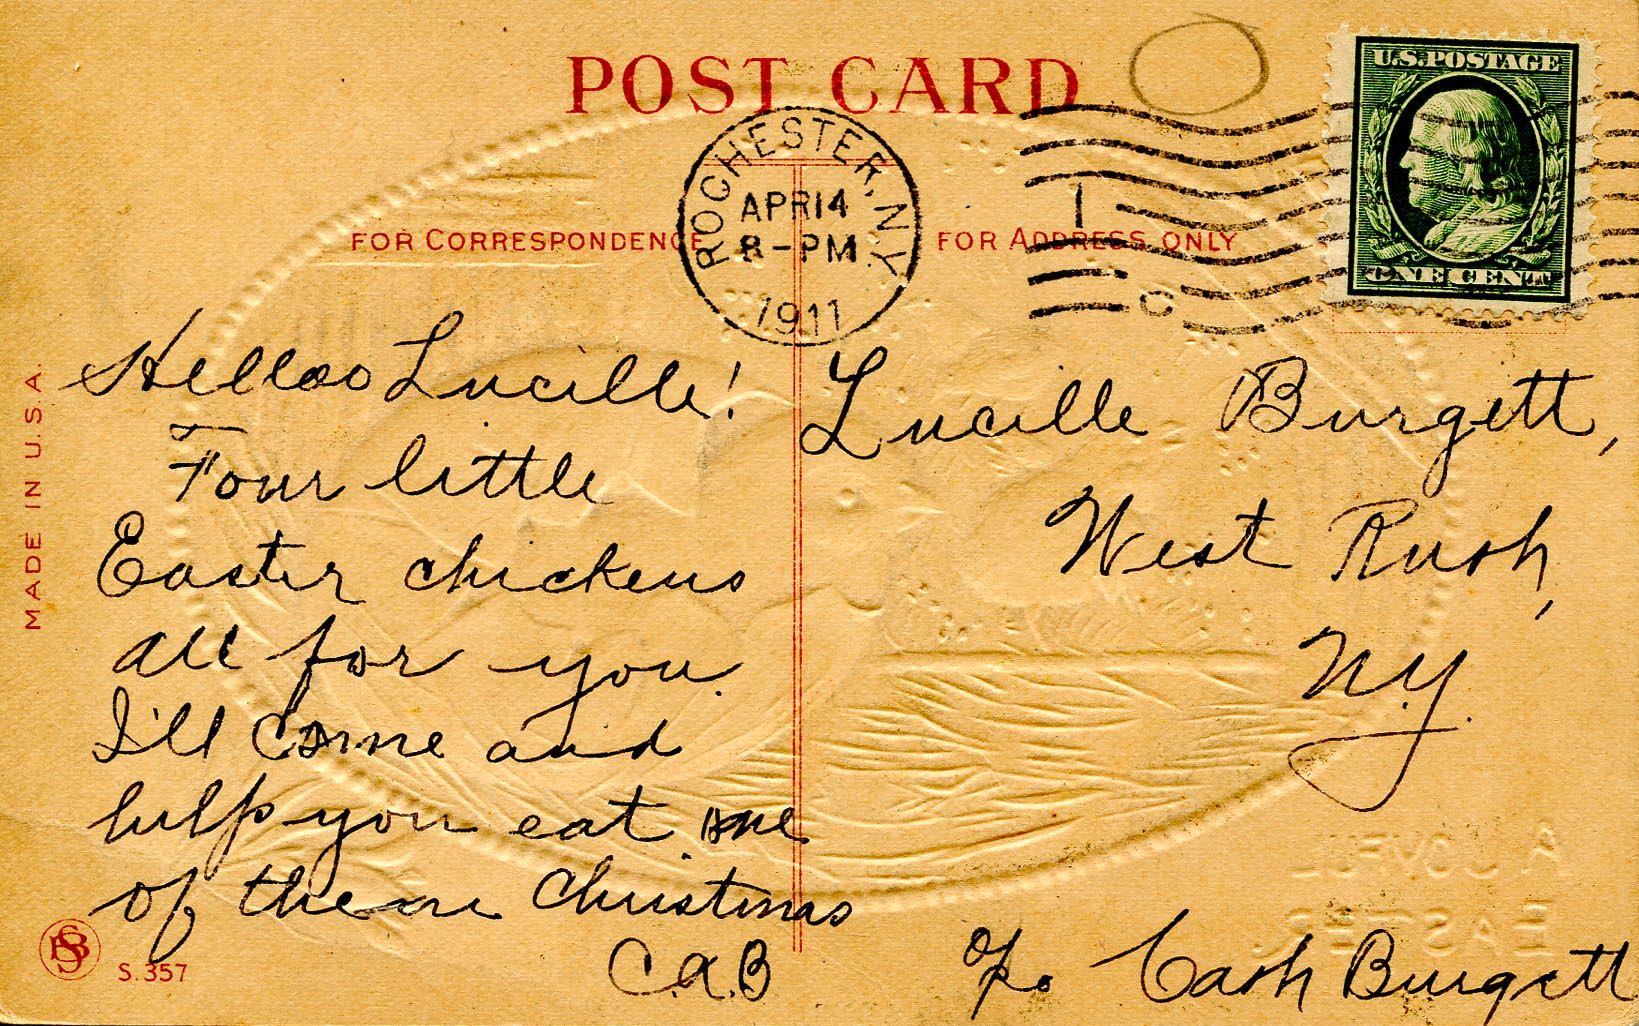 POST CARD
U.S. POSTAGE
ONE CENT
ROCHESTER, N.Y.
APR 14
8-PM
1911
1
C
FOR CORRESPONDENCE
FOR ADDRESS ONLY
MADE IN U.S.A.
Helloo Lucille!
Four little
Easter chickens
all for you.
I'll come and
help you eat one
of them Christmas
C.A.B
Lucille Burgett,
West Rush,
N.Y.
c/o Cash Burgett
A JOYFUL
EASTER.
SB
S. 357